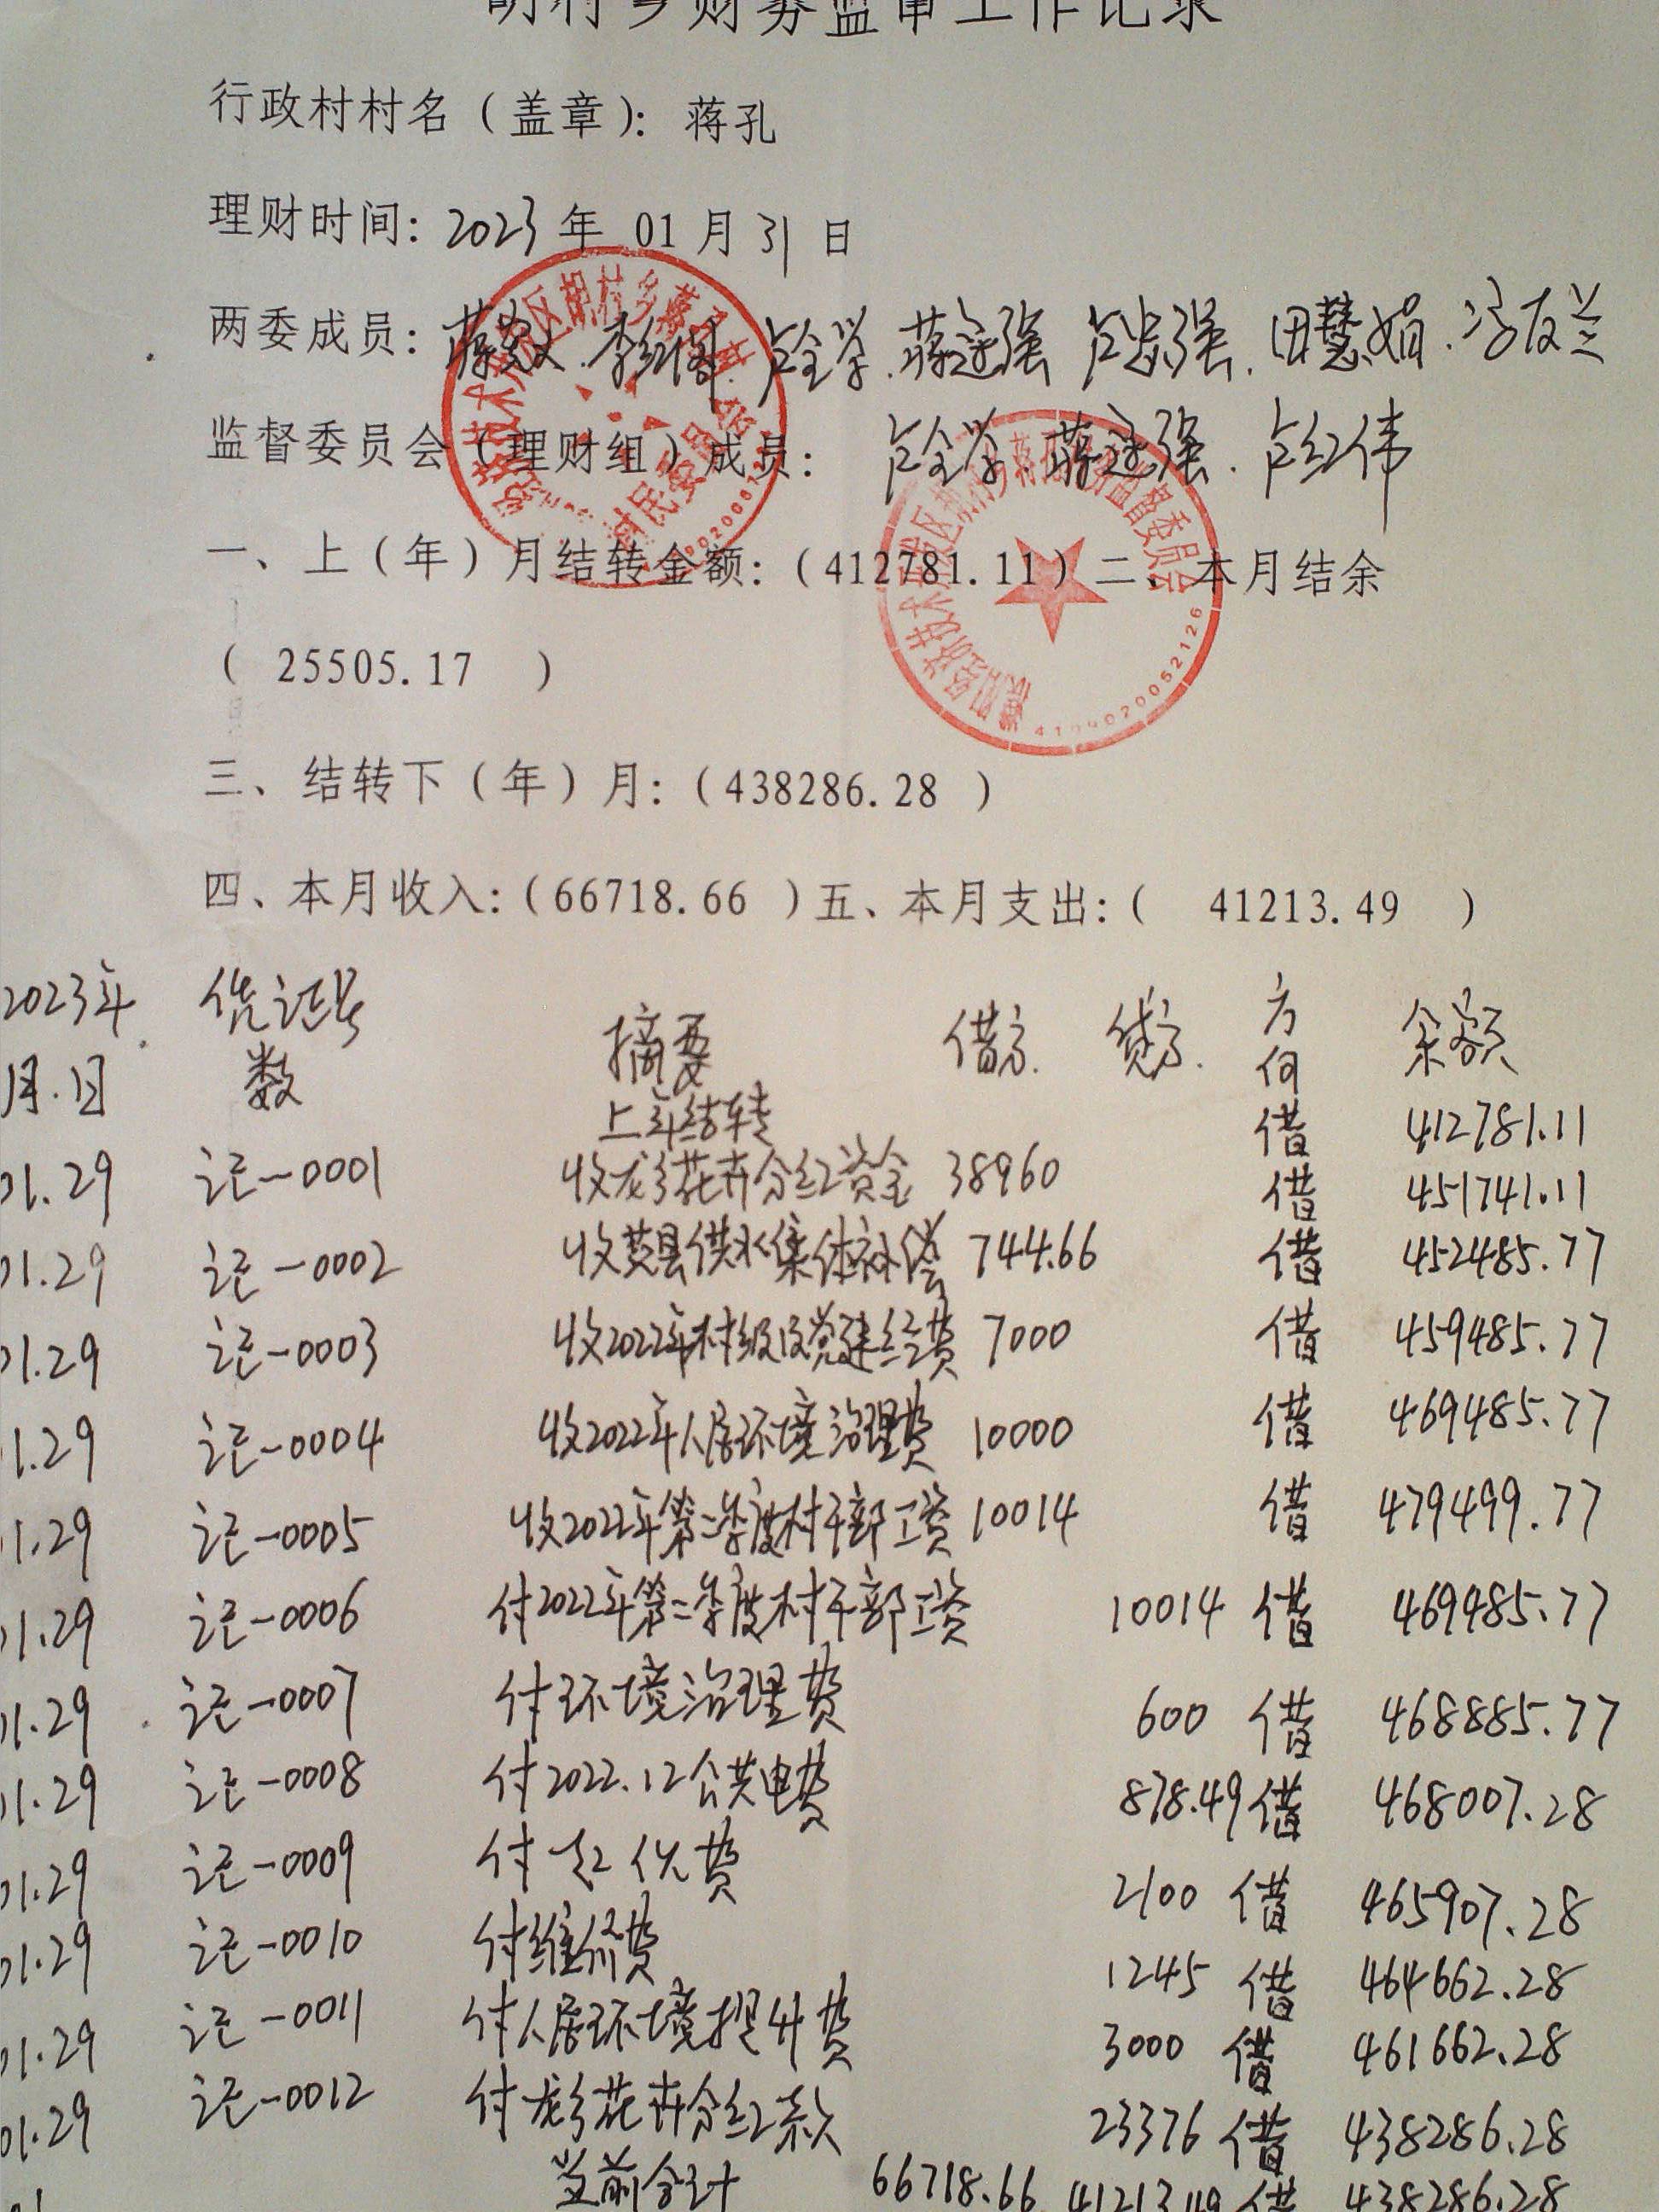 胡村乡财务监审工作记录
行政村村名（盖章）：蒋孔
理财时间：2023年 01月31日
两委成员：李红阁.卢全学.蒋运强 卢忠强.田慧娟.冯友兰
监督委员会（理财组）成员：卢全学.蒋运强.卢红伟
一、上（年）月结转金额：（412781.11）二、本月结余
（ 25505.17 ）
三、结转下（年）月：（438286.28 ）
四、本月收入：（66718.66 ）五、本月支出：（ 41213.49 ）
2023年 凭证号 摘要 借方 贷方 方向 余额
月.日 数
上年结转 借 412781.11
01.29 记-0001 收龙乡花卉分红资金 38960 借 451741.11
01.29 记-0002 收范县供水集体补偿 744.66 借 452485.77
01.29 记-0003 收2022年村级及党建经费 7000 借 459485.77
1.29 记-0004 收2022年人居环境治理费 10000 借 469485.77
1.29 记-0005 收2022年第二季度村干部工资 10014 借 479499.77
01.29 记-0006 付2022年第二季度村干部工资 10014 借 469485.77
01.29 记-0007 付环境治理费 600 借 468885.77
01.29 记-0008 付2022.12公共电费 878.49 借 468007.28
01.29 记-0009 付红优费 2100 借 465907.28
01.29 记-0010 付维修费 1245 借 464662.28
01.29 记-0011 付人居环境提升费 3000 借 461662.28
01.29 记-0012 付龙乡花卉分红款 23376 借 438286.28
当前合计 66718.66 41213.49 借 438286.28
4109020052126